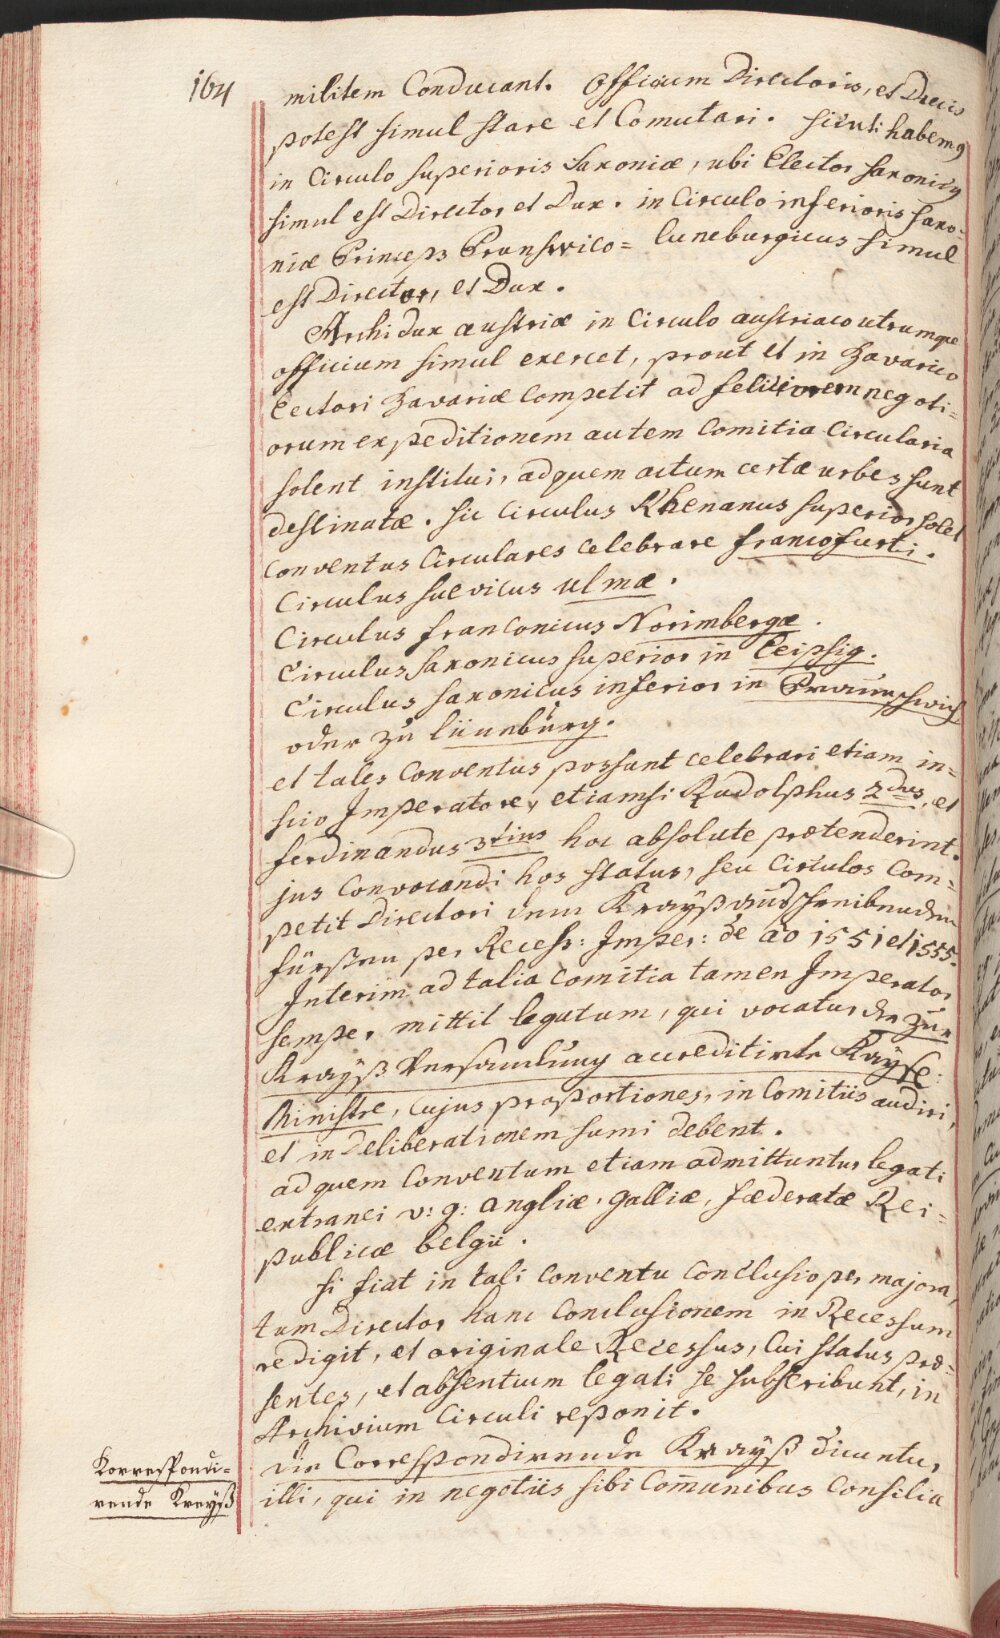 164
militem Conducant. Officium Directoris, et Ducis
potest simul stare et Comutari. sicuti habemq
in Circulo superioris Saxoniæ, ubi Elector saxonicq
simul est Director et Dux. in Circulo inferioris saxo-
niæ Princeps Brunswico= luneburgicus simul
est Director, et Dux.
Archidux austriæ in Circulo austriaco utrumque
officium simul exercet, prout et in Bavarico
Electori Bavariæ Competit ad feliciorem negoti=
orum expeditionem autem Comitia Circularia
solent institui, ad quem actum certæ urbes sunt
destinatæ. sic Circulus Rhenanus superior solet
conventus Circulares celebrare francofurti.
Circulus suevicus ulmæ.
Circulus franconicus Norimbergæ.
Circulus saxonicus superior in Leipsig.
Circulus saxonicus inferior in Braunschwich
oder zu lüneburg.
et tales Conventus possunt celebrari etiam in=
scio Imperatore, etiamsi Rudolphus 2dus, et
ferdinandus 3tius hoc absolute prætenderint.
jus Convocandi hos status, seu Circulos Com=
petit Directori dem Krayß ausschreibenden
fürsten per Recess: Imper: de ao 1551 et 1555.
Interim ad talia comitia tamen Imperator
semper mittit legatum, qui vocatur der zur
Krayß Versamlung accreditirte Kayse:
Ministre, Cujus proportiones, in Comitiis audiri,
et in Deliberationem sumi debent.
ad quem Conventum etiam admittuntur legati
extranei v: g: angliæ, galliæ, fæderatæ Rei=
publicæ belgii.
si fiat in tali Conventu Conclusio per majora,
tum Director hanc Conclusionem in Recessum
redigit, et originale Recessus, Cui status præ=
sentes, et absentium legati se subscribunt, in
Archivium Circuli reponit.
Korrespondi=
rende Kreyß
die Correspondirende Krayß dicuntur
illi, qui in negotiis sibi Comunibus Consilia